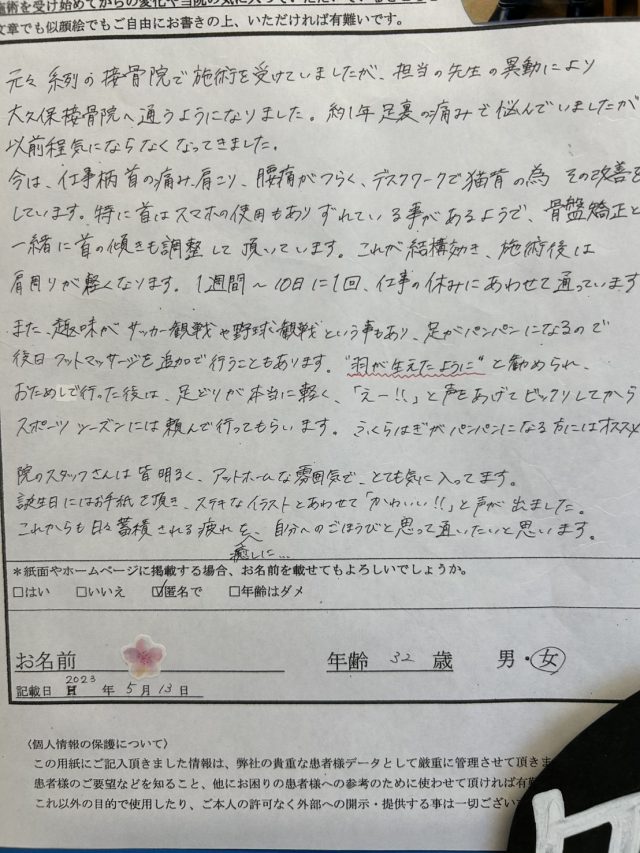 施術を受け始めてからの変化や当院の気に入っていただいているところ
文章でも似顔絵でもご自由にお書きの上、いただければ有難いです。
元々系列の接骨院で施術を受けていましたが、担当の先生の異動により
大久保接骨院へ通うようになりました。約1年足裏の痛みで悩んでいましたが
以前程気にならなくなってきました。
今は、仕事柄首の痛み、肩こり、腰痛がつらく、デスクワークで猫背の為その改善を
しています。特に首はスマホの使用もありずれている事があるようで、骨盤矯正と
一緒に首の傾きも調整して頂いています。これが結構効き、施術後は
肩周りが軽くなります。1週間～10日に1回、仕事の休みにあわせて通っています
また、趣味がサッカー観戦や野球観戦という事もあり、足がパンパンになるので
後日フットマッサージを追加で行うこともあります。"羽が生えたように"と勧められ、
おためしで行った後は、足どりが本当に軽く、「えー!!」と声をあげてビックリしてから
スポーツシーズンには頼んで行ってもらいます。ふくらはぎがパンパンになる方にはオススメ
院のスタッフさんは皆明るく、アットホームな雰囲気で、とても気に入ってます。
誕生日にはお手紙を頂き、ステキなイラストとあわせて「かわいい!!」と声が出ました。
これからも日々蓄積される疲れを、自分へのごほうびと思って通いたいと思います。
癒しに…
＊紙面やホームページに掲載する場合、お名前を載せてもよろしいでしょうか。
□はい □いいえ ☑匿名で □年齢はダメ
お名前 年齢 32 歳 男・女
記載日 2023 年 5月 13日
〈個人情報の保護について〉
この用紙にご記入頂きました情報は、弊社の貴重な患者様データとして厳重に管理させて頂きま
患者様のご要望などを知ること、他にお困りの患者様への参考のために使わせて頂ければ有難
これ以外の目的で使用したり、ご本人の許可なく外部への開示・提供する事は一切ござい